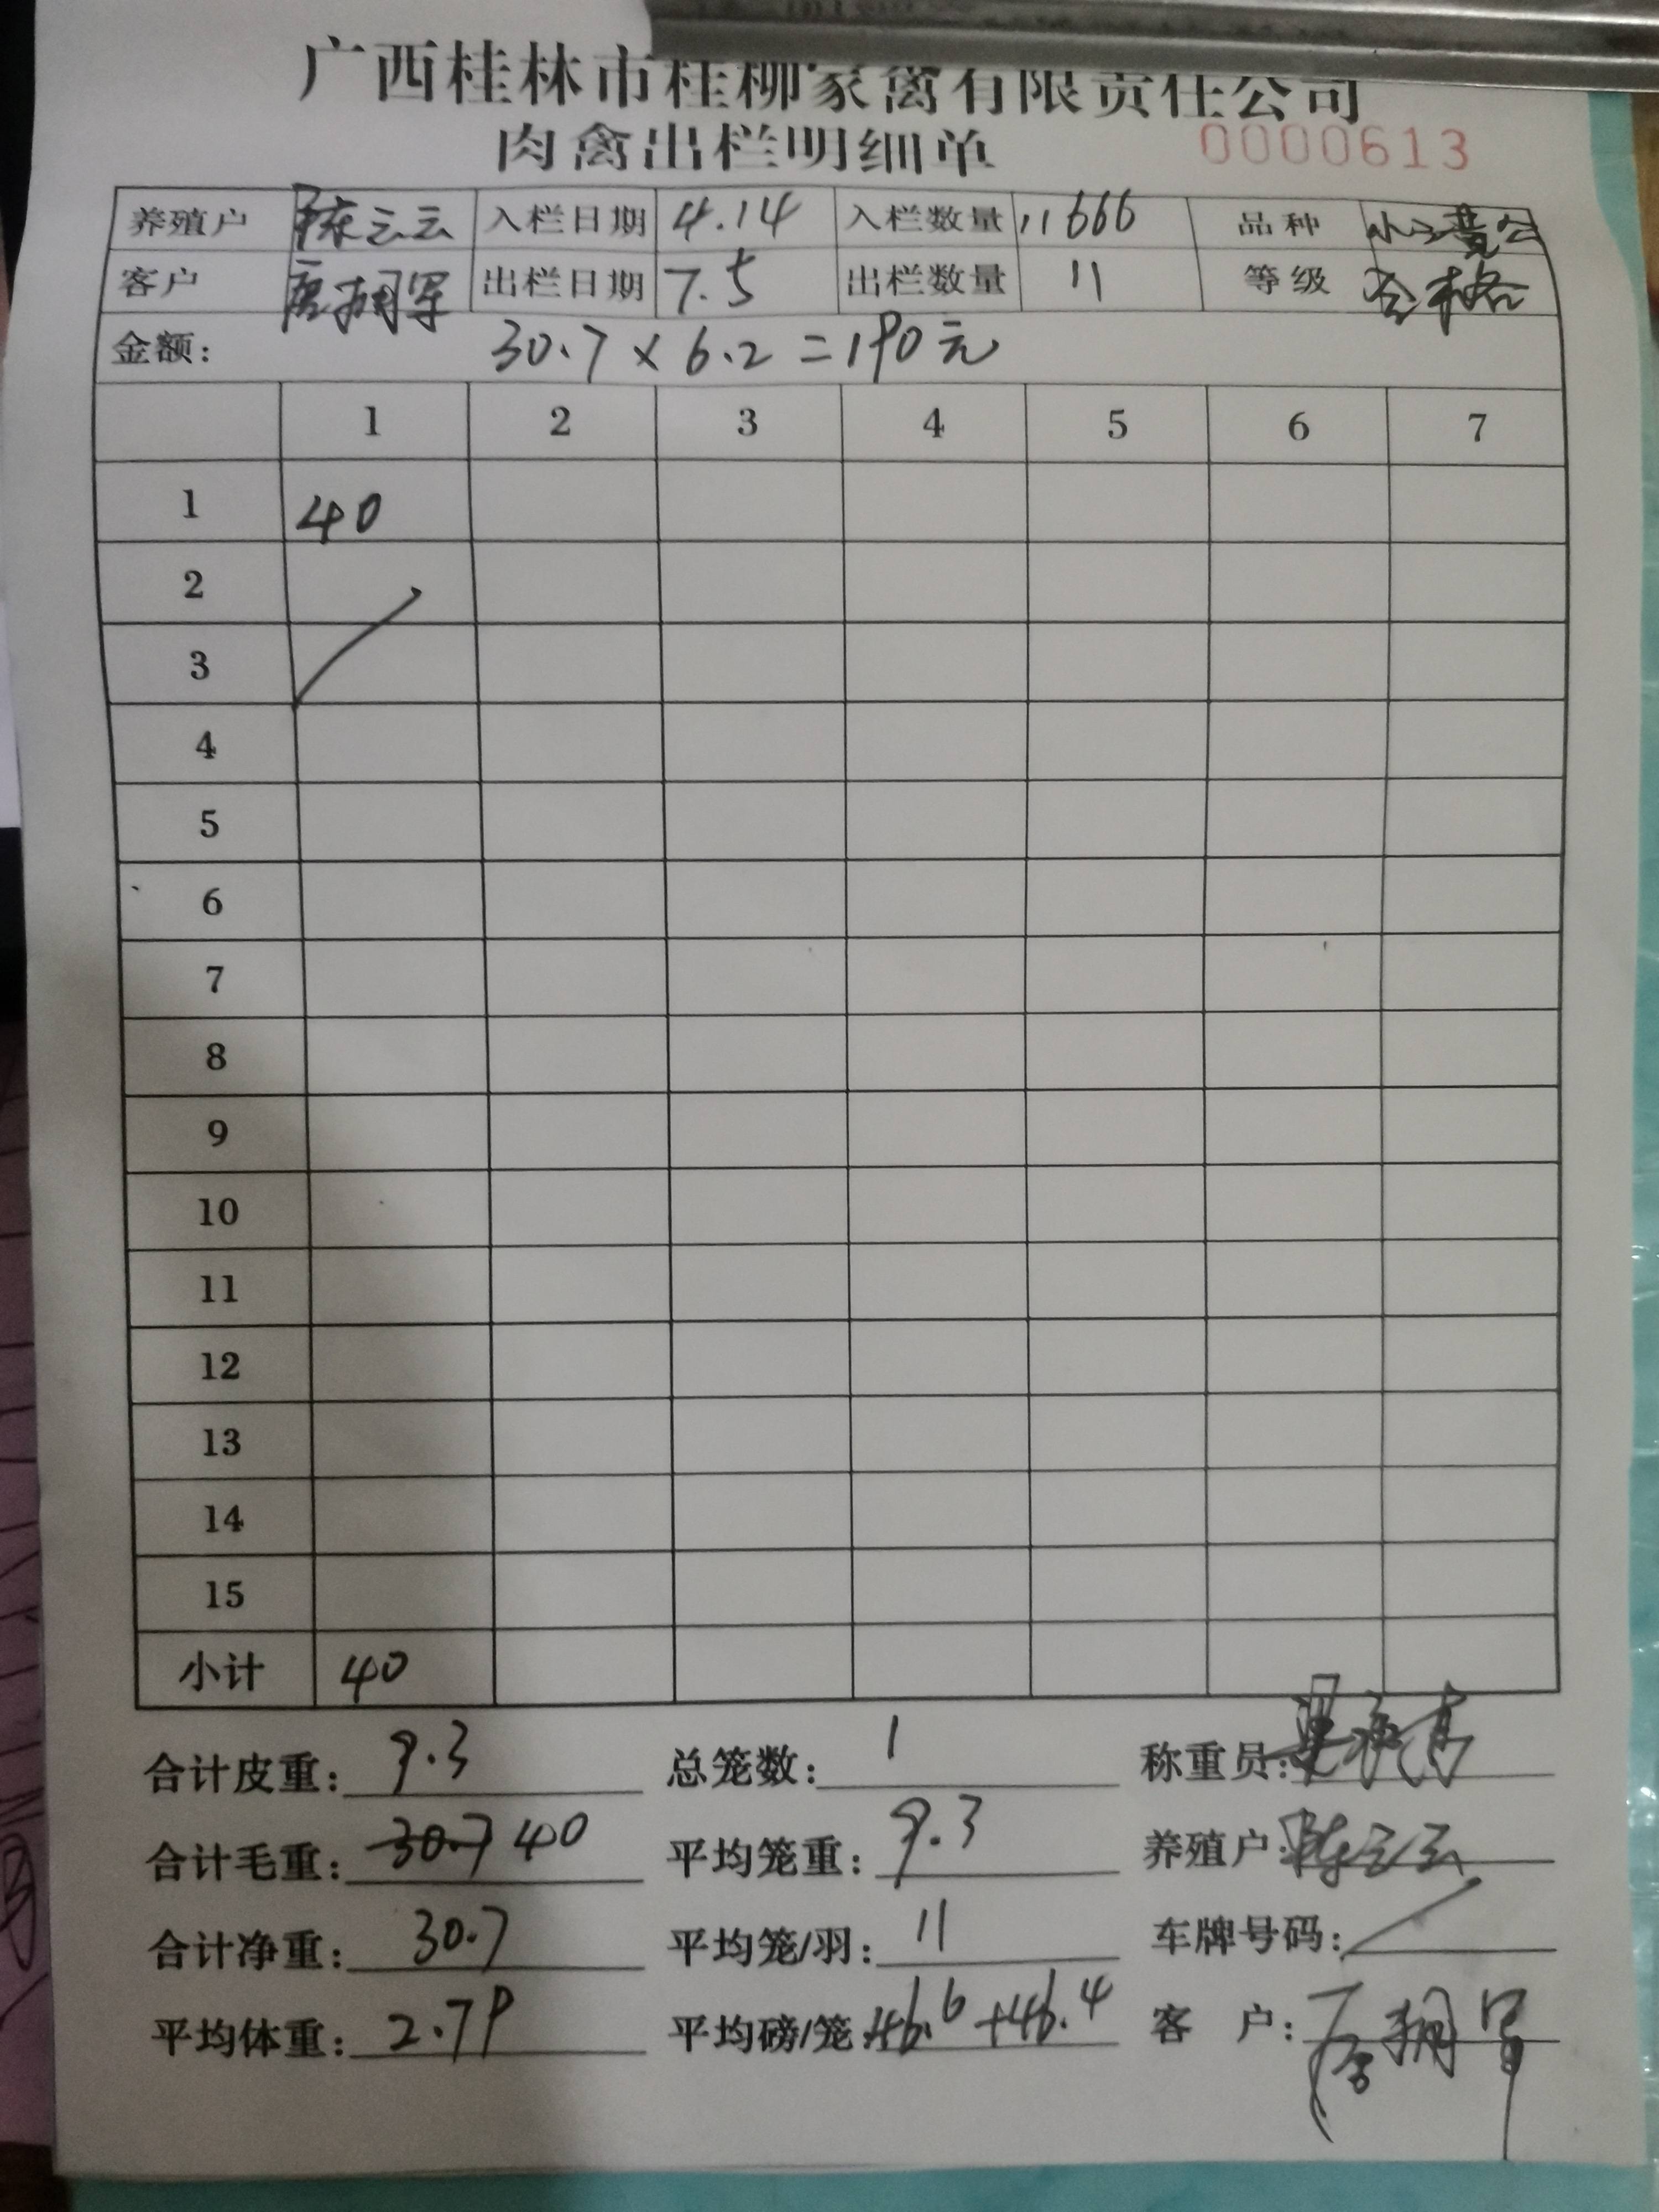 广西桂林市桂柳家禽有限责任公司
肉禽出栏明细单 0000613
养殖户 陈云云 入栏日期 4.14 入栏数量 11666 品种
客户 唐拥军 出栏日期 7.5 出栏数量 11 等级 合格
金额: 30.7 x 6.2 = 190元
1 2 3 4 5 6 7
1 40
2
3
4
5
6
7
8
9
10
11
12
13
14
15
小计 40
合计皮重: 9.3 总笼数: 1 称重员:
合计毛重: 30.7 40 平均笼重: 9.3 养殖户: 陈云云
合计净重: 30.7 平均笼/羽: 11 车牌号码:
平均体重: 2.79 平均磅/笼: 46.6 +46.4 客户: 唐拥军